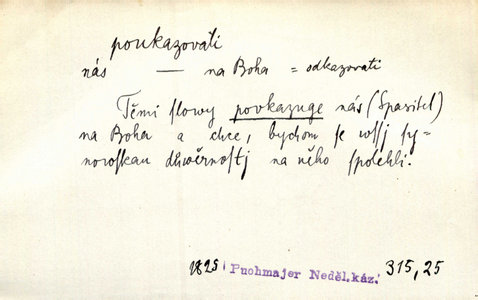 poukazovati
nás — na Boha = odkazovati
Těmi slowy powkazuge nás (Spasitel)
na Boha a chce, bychom se wssj sy-
nowskau důwěrnostj na něho spolehli.
1825 Puchmajer Neděl.káz. 315,25